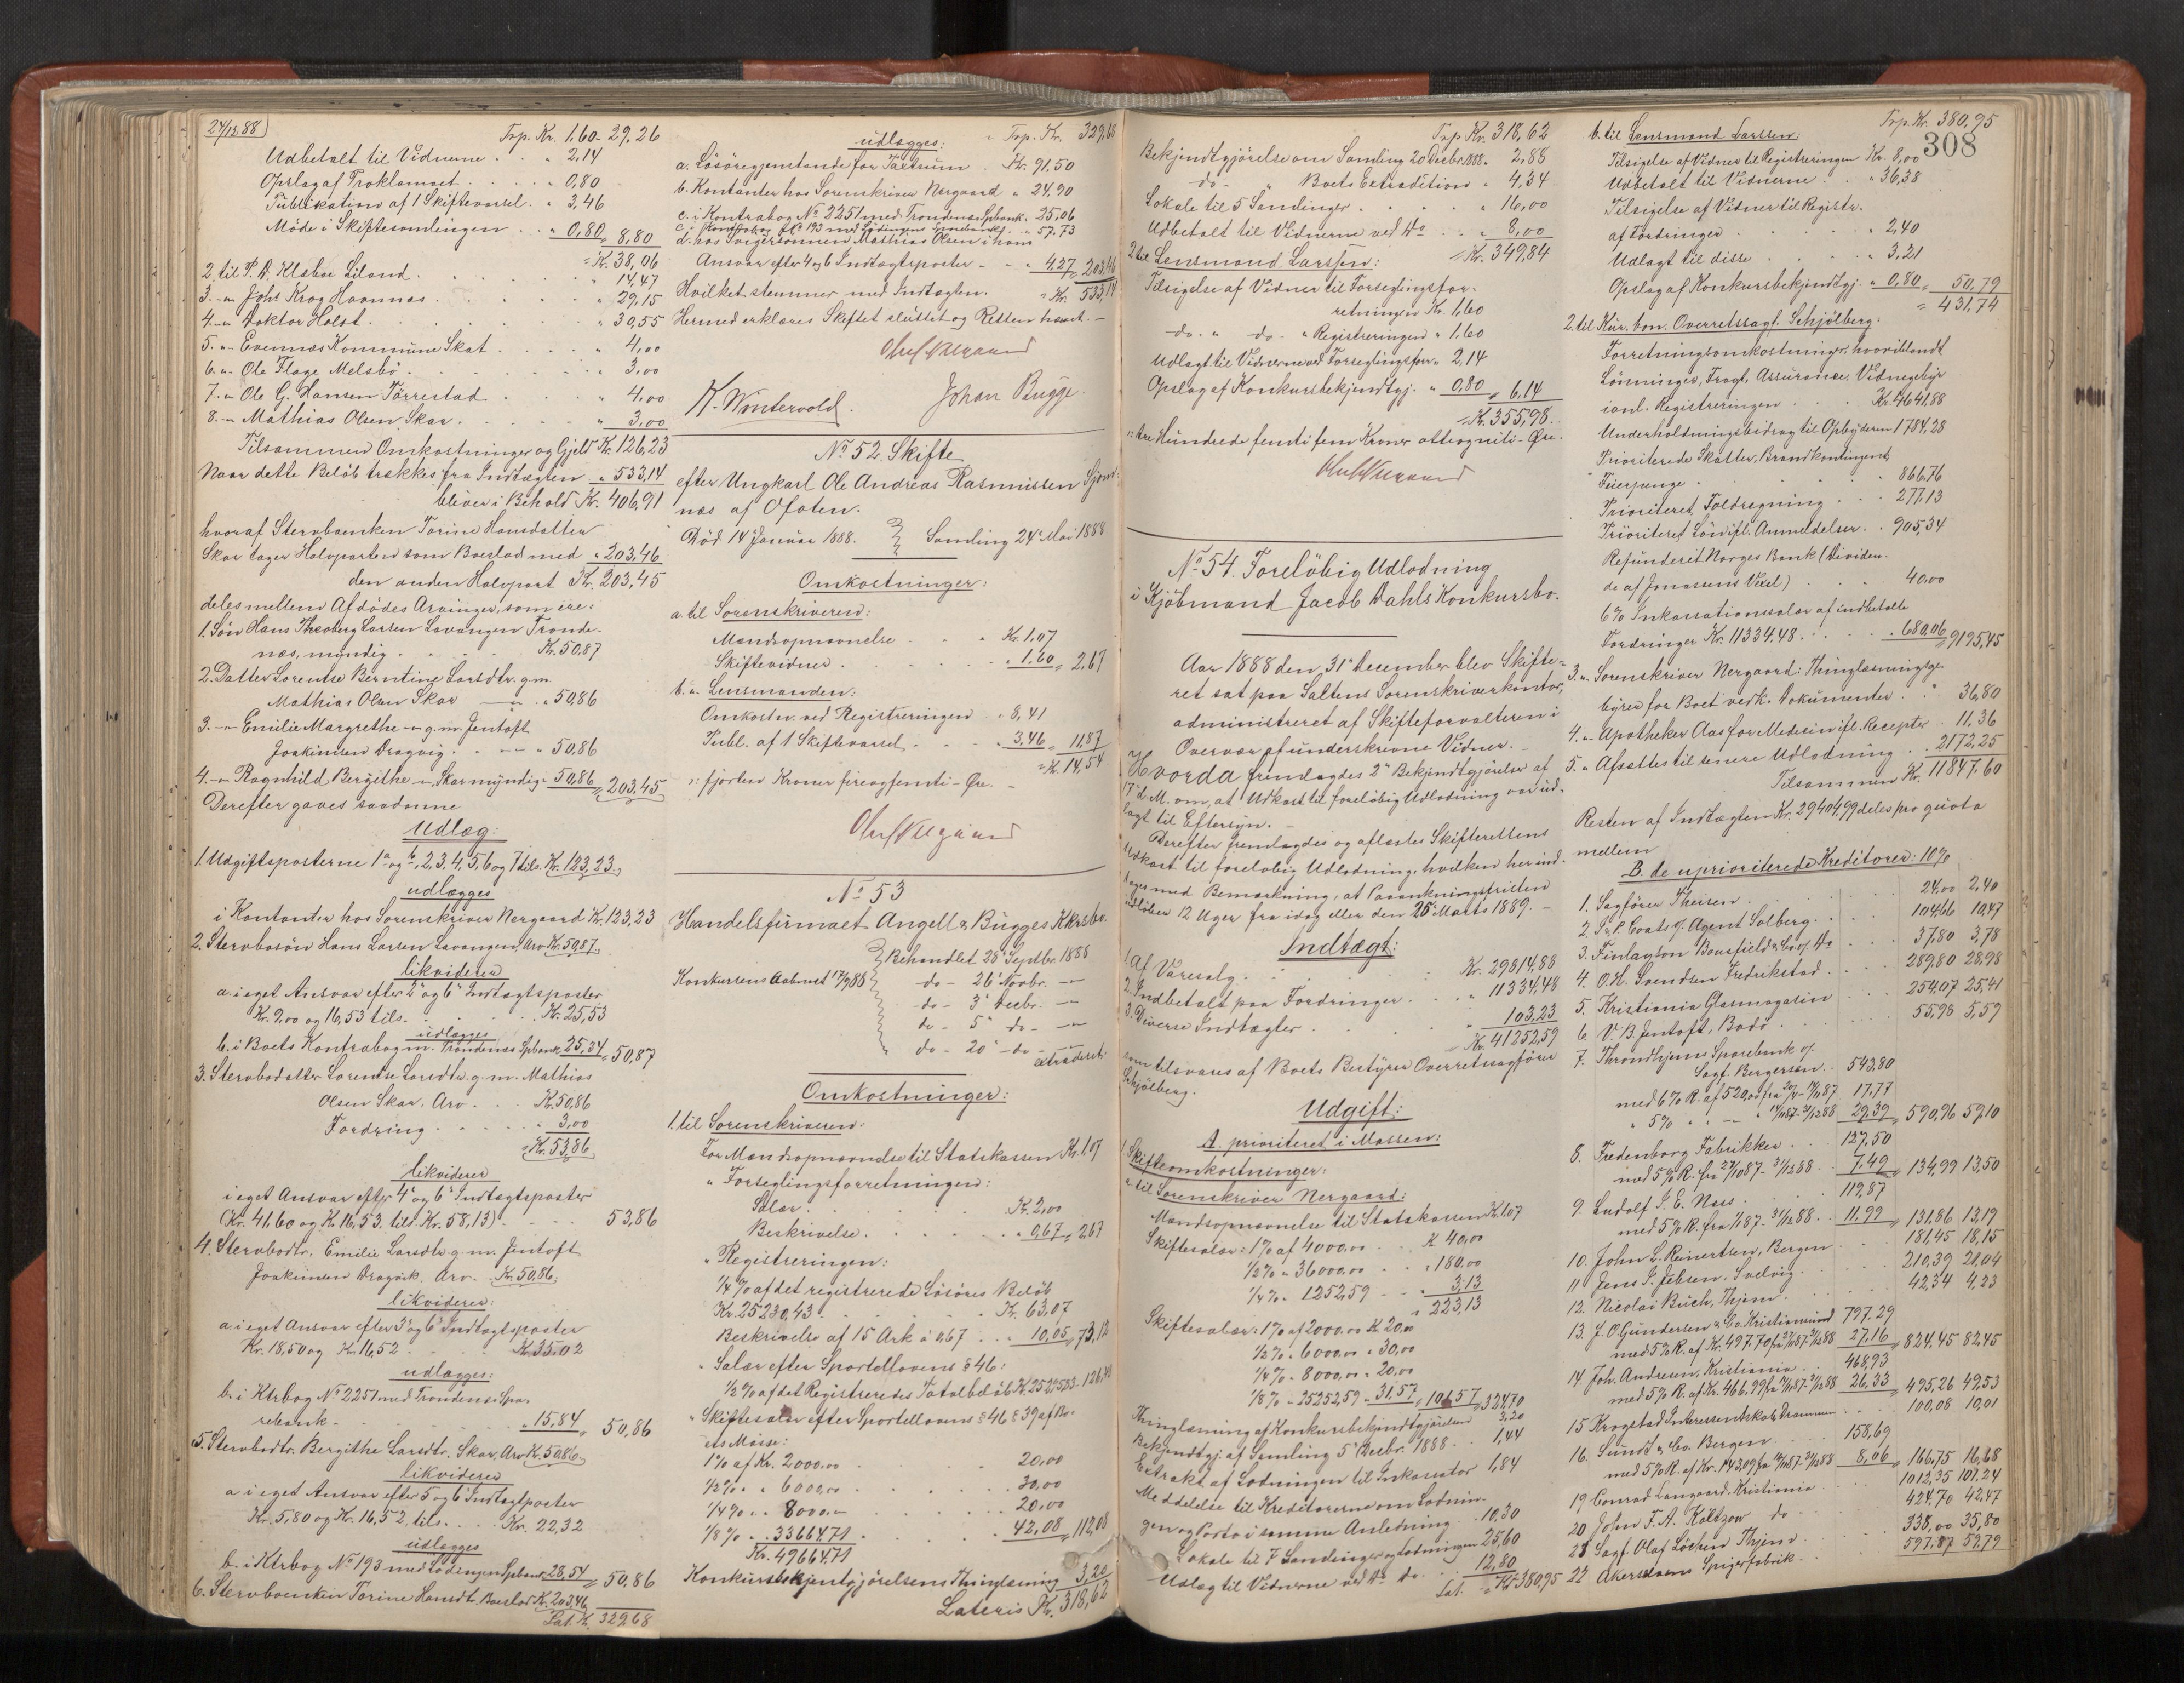 24/12 88
Trp. Kr. 1.60 - 29,26
Udbetalt til Vidnerne . . " 2,14
Opslag af Proklamaet . . . " 0,80
Publikation af 1 Skiftevarsel . " 3,46
Møde i Skiftesamlingen . . " 0,80 = 8,80
= Kr. 38,06
2. til P. A. Klæboe Liland . . " 14,47
3. -"- Johs Krog Havnnæs . . " 29,15
4. -"- Doktor Holst . . . " 30,55
5. -"- Evenæs Kommune Skat . . " 4,00
6. -"- Ole Flage Melsbø . . " 3,00
7. -"- Ole G. Hansen Tårrestad . . " 4,00
8. -"- Mathias Olsen Skar . . " 3,00
Tilsammen Omkostninger og Gjeld Kr. 126,23
Naar dette Beløb trækkes fra Indtægten " 533,14
bliver i Behold Kr. 406,91
hvoraf Stervboenken Torine Hansdatter
Skar tager Halvparten som Boeslod med " 203,46
den anden Halvpart Kr. 203,45
deles mellem Afdødes Arvinger, som ere:
1. Søn Hans Theoberg Larsen Lavangen Tronde-
næs, myndig . . . Kr. 50,87
2. Datter Lorentse Berntine Larsdtr. g.m.
Mathias Olsen Skar -"- " 50,86
3. -"- Emilie Margrethe -"- g.m. Jentoft
Joakimsen Dragvig . -"- " 50,86
4. -"- Ragnhild Bergithe -"- Skar myndig " 50,86 = 203,45
Derefter gaves saadanne
Udlæg:
1. Udgiftsposterne 1 a og b, 2, 3, 4, 5, 6 og 7 tils. Kr. 123,23
udlægges
i Kontanter hos Sorenskriver Nergaard Kr. 123,23
2. Stervbosøn Hans Larsen Lavangen, Arv Kr. 50,87
likviderer
a. i eget Ansvar efter 2' og 6' Indtægtsposter
Kr. 9,00 og 16,53 tils. . . Kr. 25,53
udlægges
b. i Boets Kontrabog m. Trondenæs Spbank 25,34 = 50,87
3. Stervbodatter Lorentse Larsdtr. g. m. Mathias
Olsen Skar, Arv . . Kr. 50,86
Fordring . . . " 3,00
= Kr. 53,86
likviderer
i eget Ansvar efter 4' og 6' Indtægtsposter
(Kr. 41,60 og Kr. 16,53. tils. Kr. 58,13) . . 53,86
4. Stervbodtr. Emilie Larsdtr. g. m. Jentoft
Joakimsen Dragvik. Arv. Kr. 50,86
likviderer:
a. i eget Ansvar efter 3' og 6' Indtægtsposter
Kr. 18,50 og Kr. 16,52 . . Kr. 35.02
udlægges:
b. i Ktrbog No 2251 med Trondenæs Spa-
rebank . . . " 15,84 = 50,86
5. Stervbodtr. Bergithe Larsdtr. Skar, Arv Kr. 50,86
likviderer
a i eget Ansvar efter 5 og 6 Indtægtsposter
Kr. 5,80 og Kr. 16,52, tils. . Kr. 22,32
udlægges
b. i Ktrbog No 193 med Lødingen Spbank 28,54 = 50,86
6. Stervboenken Torine Hansdt. Boeslod Kr. 203,46
Lat. Kr. 329,68
Trp. Kr. 329,68
udlægges:
a. Løsøregjenstande for Taxtsum . Kr. 91.50
b. Kontanter hos Sorenskriver Nergaard " 24,90
c. i Kontrabog No 2251 med Trondenæs Spbank . 25,06
c. i Kontrabog No 193 med Lødingens Sparebank . 57.73
d. hos Svigersønnen Mathias Olsen i hans
Ansvar efter 4 og 6 Indtægtsposter - " 4,27 = 203,46
= Kr. 533,14
Hvilket stemmer med Indtægten.
Hermed erklæres Skiftet sluttet og Retten hævet. -
Oluf Nergaard
K. Wintervold. Johan Bugge.
No 52. Skifte
efter Ungkarl Ole Andreas Rasmussen
næs af Ofoten.
Død 14' Januar 1888. Samling 24' Mai 1888
Omkostninger:
a. til Sorenskriveren:
Mændsopnævnelse . . Kr. 1,07
Skiftevidner . . . " 1,60 = 2,67
b. -"- Lensmanden:
Omkostn. ved Registreringen . " 8,41
Publ. af 1 Skiftevarsel . . " 3,46 = 11,87
= Kr. 14,54
": fjorten Kroner fireogfemti - Øre. -
Oluf Nergaard
No 53
Handelsfirmaet Angell & Bugges Kkrsbo.
Konkursens Aabnet 17/9 88
Behandlet 28' Septbr. 1888
do - 26' Novbr. -"-
do - 3' Decbr. -"-
do - 5' do - -"-
do - 20' - do - -"-
extraderet
Omkostninger:
1. til Sorenskriveren:
For Mændsopnævnelse til Statskassen Kr. 1.07
" Forseglingsforretningen:
Salær . . . Kr. 2,00
Beskrivelse . . . " 0,67 = 2,67
" Registreringen:
1/4 % af det registrerede Løsøres Beløb
Kr. 25230,43 . . . Kr. 63,07
Beskrivelse af 15 Ark à 0,67 . . " 10,05 = 73,12
" Salær efter Sportellovens § 46:
1/2 % af det Registreredes Totalbeløb Kr.
" Skiftesalær efter Sportellovens § 46 & 39 af Bo-
ets Masse:
1 % af Kr. 2000,00 . . 20,00
1/2 % " " 6000,00 . . 30,00
1/4 % " " 8000,00 . . 20,00
1/8 % " " 33664.71 . . " 42,08 = 112,08
Kr. 49664.71
Konkursbekjentgjørelsens Thinglæsning 3,20
Lateris Kr. 318,62
Trp. Kr. 318,62
Bekjendtgjørelse om Samling 20 Decbr. 1888 . 2,88
do - " Boets Extradition " 4,34
Lokale til 5 Samlinger . . " 16,00
Udbetalt til Vidnerne ved Do . . " 8,00
= Kr. 349,84
2 til Lensmand Larssen:
Tilsigelse af Vidner til Forseglingsfor-
retningen Kr. 1,60
-do- " do - " Registreringen " 1,60
Udlagt til Vidnerne ved Forseglingsforr. " 2,14
Opslag af Konkursbekjendtgj. " 0,80 = 6,14
= Kr. 355,98
": tre Hundrede femtifem Kroner otteogniti - Øre.
Oluf Nergaard
No 54. Foreløbig Udlodning
i Kjøbmand Jacob Dahls Konkursbo.
Aar 1888 den 31' December blev Skifte-
ret sat paa Saltens Sorenskriverkontor,
administreret af Skifteforvalteren i
Overvær af underskrevne Vidner. -
Hvorda fremlagdes 2' Bekjendtgjørelser af
17' d. M. om, at Udkast til foreløbig Udlodning var ud-
lagt til Eftersyn. -
Derefter fremlagdes og oplæstes Skifterettens
Udkast til foreløbig Udlodning, hvilken her ind-
tages med Bemærkning, at Paaankningsfristen
udløber 12 Uger fra idag eller den 25' Marts 1889. -
Indtægt:
1. Af Varesalg . . . Kr. 29814,88
2. Indbetalt paa Fordringer . . " 11334,48
3. Diverse Indtægter . . . " 103,23
Kr. 41252,59
som tilsvares af Boets Bestyrer Overretssagfører
Schjølberg.
Udgift:
A. prioriteret i Massen:
1 Skifteomkostninger:
a til Sorenskriver Nergaard:
Mændsopnævnelse til Statskassen Kr. 1,07
Skiftesalær: 1 % af 4000,00 . . K 40,00
1/2 % " 36000,00 . . " 180,00
1/4 % " 1252,59 . . " 3,13
" 223,13
Skiftesalær: 1 % af 2000,00 K. 20,00
1/2 % " 6000,00 " 30,00
1/4 % " 8000,00 " 20,00
1/8 % " 25252,59 " 31,57 = 101,57 = 324,70
Thinglæsning af Konkursbekjendtgjørelsen 3,20
Bekjendtgj. af Samling 5' Decbr. 1888 . 1,44
Extrakt af Lodningen til Inkassator 1,84
Meddelelse til Kreditorerne om Lodnin-
gen og Porto i samme Anledning . 10,30
Lokale til 7 Samlinger og Lodningen 25,60
Udlæg til Vidnerne ved Do do . 12,80
Lat. = Kr. 380,95
Trp. Kr. 380,95
308
b. til Lensmand Larssen:
Tilsigelse af Vidner til Registreringen Kr. 8,00
Udbetalt til Vidnerne . . " 36,38
Tilsigelse af Vidner til Registr.
af Fordringer . . . " 2,40
Udlagt til disse . . . " 3,21
Opslag af Konkursbekjendtgj. " 0,80 = 50,79
= 431,74
2. til Kur. bon. Overretssagf. Schjølberg:
Forretningsomkostninger, hvoriblandt
Lønninger, Fragt, Assurance, Vidnegebyr
ianl. Registreringen . . Kr. 4641,88
Underholdningsbidrag til Opbyderen 1784,28
Prioriterede Skatter, Brandkontingent,
Feierpenge . . . " 866,76
Prioriteret Toldregning . . " 277,13
Prioriteret Løn ifl. Anmeldelser . " 905,34
Refunderet Norges Bank (Dividen-
de af Jonassens Vexel) . . 40,00
6 % Inkassationssalær af indbetalte
Fordringer Kr. 11334.48 . . " 680,06 = 9195,45
3. -"- Sorenskriver Nergaard: Thinglæsningsge-
byrer for Boet vedk. Dokumenter . " 36,80
4. -"- Apotheker Aas for Medecin ifl. Recepter . 11,36
5. " Afsættes til senere Udlodning . . 2172,25
Tilsammen Kr. 11847.60
Resten af Indtægten Kr. 29404,99 deles pro quota
mellem
B. de uprioriterede Kreditorer: 10 %
1. Sagfører Theisen . . 24,00 2,40
2. J. & P. Coats v. Agent Solberg . . 104,66 10,47
3. Finlayson Bousfield & Co v. Do . . 37,80 3,78
4. O. H. Svendsen Fredrikstad . . 289,80 28,98
5. Kristiania Glasmagasin . . 254,07 25,41
6. V. B. Jentoft, Bodø . . 55,93 5,59
7. Throndhjems Sparebank v.
Sagf. Bergersen . . 543,80
med 6 % R. af 520,00 fra 17,77
" 5 % " " 29,39 = 590,96 59,10
8. Fredenborg Fabrikker . . 127,50
med 5 % R. fra 27/10 87 - 31/12 88 . 7,49 = 134,99 13,50
9. Ludolf J. E. Næss . . 119,87
med 5 % R. fra 1/1 87 - 31/12 88 . 11,99 = 131,86 13,19
10. John L. Reinertsen, Bergen . . 181,45 18,15
11 Jens P. Jebsen, Svelvig . . 210,39 21,04
12. Nicolai Buch, Thjem . . 42,34 4,23
13. J. O. Gundersen & Co. Kristiansund 797,29
med 5 % R. af Kr. 497.70 fra 27,16 = 824,45 82,45
14 Joh. Andresen, Kristiania . . 468,93
med 5 % R. af Kr. 466.99 fra 26,33 = 495,26 49,53
15 Krogstad Interessentskab Drammen . . 100,08 10,01
16. Sundt & Co. Bergen . . 158,69
med 5 % R. af Kr. 143,09 fra 8,06 = 166,75 16,68
19 Conrad Langaard. Kristiania . . 1012,35 101,24
20 John F. A. Koltzow do - . . 424,70 42,47
Sagf. Olaf Løchen Thjem . . 338,00 35,80
22 Akerselvens Spigerfabrik . . 597,87 59,79